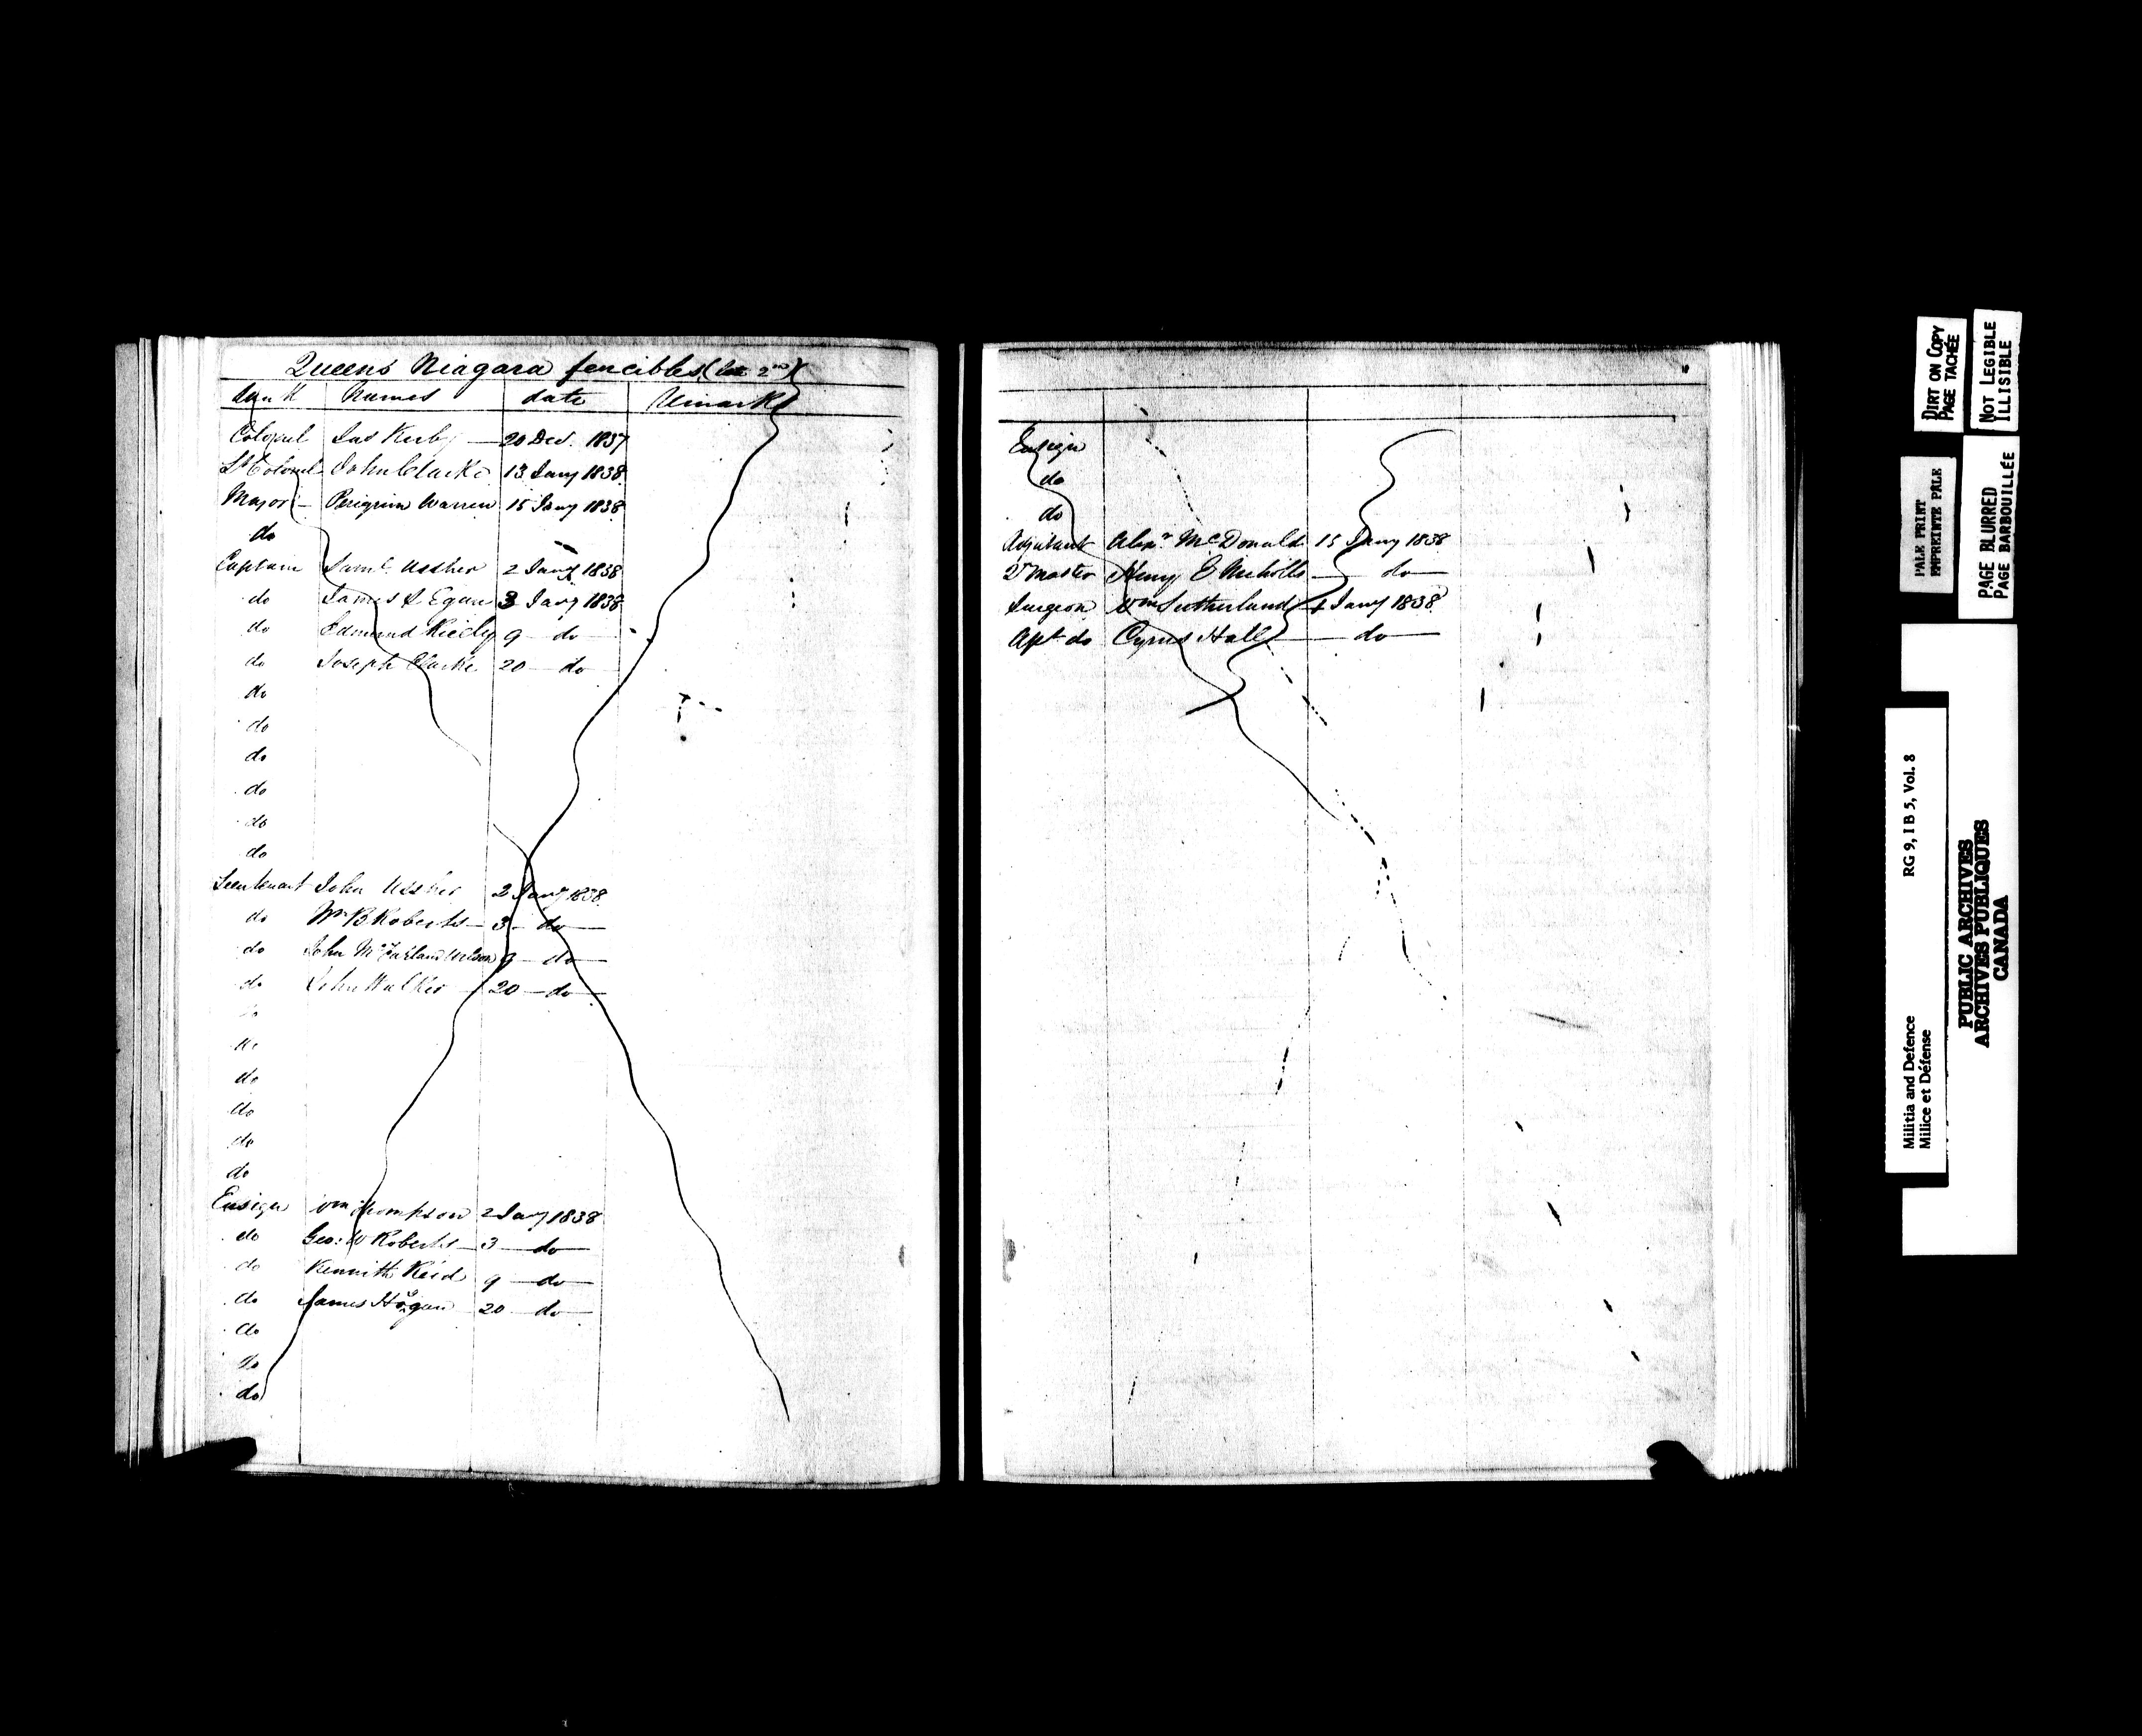 Queens Niagara fencibles (late 2nd)
Rank Names date Remarks
Colonel Jas Kerby — 20 Decr. 1837
Lt Colonel John Clarke 13 Jany 1838
Major — Perigrin Warren 15 Jany 1838
do
Captain Saml. Ussher 2 Jany 1838
do James S. Egan 3 Jany 1838
do Edmund Kielly 9 — do —
do Joseph Clarke 20 — do
do
do
do
do
do
do
Lieutenant John Ussher 2 Jany 1838
do Wm B Roberts — 3 — do —
do John McFarland Wilson 9 — do —
do John Walker — 20 — do —
do
do
do
do
do
do
Ensign Wm Thompson 2 Jany 1838
do Geo: W Roberts — 3 — do —
do Kennith Reid 9 — do —
do James Hogan 20 — do —
do
do
do
Ensign
do
do
Adjutant Alexr. McDonald 15 Jany 1838
Qr Master Henry Nicholls — do —
Surgeon Wm Sutherland 1 Jany 1838
Asst do Cyrus Hall — do —
DIRT ON COPY
PAGE TACHÉE
NOT LEGIBLE
ILLISIBLE
PALE PRINT
EMPREINTE PÂLE
PAGE BLURRED
PAGE BARBOUILLÉE
Militia and Defence RG 9, I B 5, Vol. 8
Milice et Défense
PUBLIC ARCHIVES
ARCHIVES PUBLIQUES
CANADA